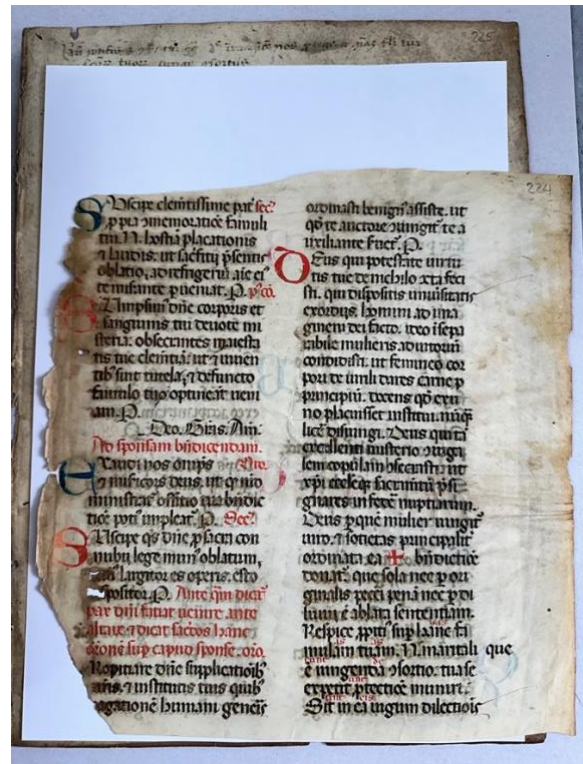 225
224
Suscipe clem̄tissime pat̄ sec̄?
p̄ pia ɔmemoratiōe famuli
tui. N. hostiā placationis
⁊ laudis. ut sac̄fitii p̄sentis
oblatio, ad refrigeriū aīe eiꝰ
te miserante p̄ueniat. P. p̄ cō.
Sumpsim̄ dn̄e corporis et
sanguinis tui deuote mi
steria: obsecrantes maiesta
tis tue clemētiā: ut ⁊ uiuen
tibꝰ sint tutela, ⁊ defuncto
famulo tuo optineāt ueni
am. P.
Deo. Gr̄as. Am̄.
Ad sponsam bn̄dicendam.
Exaudi nos om̄ps
⁊ misericors deus, ut qđ nr̄o
ministrat̄ offitio tua bn̄dic
tiōe poti impleat̄. P. Sec̄?
Suscipe q̄s dn̄e p̄ sacri con
nubii lege munꝰ oblatum,
largitor es operis, esto
positor. P. Ante q̄m dicat̄
pax dn̄i uenire ante
altare ⁊ dicat sac̄dos hanc
or̄onē sup̄ caput sponse. or̄o.
Propitiare dn̄e supplicatiōibꝰ
nr̄is. ⁊ institutis tuis quibꝰ
pagationē humani generis
ordinasti benignꝰ assiste. ut
qđ te auctore iungit̄ te a
uxiliante s̄uet̄. P.
Deus qui potestate uirtu
tis tue de nichilo cūcta feci
sti. qui dispositis uniūsitatis
exordiis, homini ad ima
ginem dei facto, ideo īsepa
rabile mulieris adiutoriū
condidisti. ut femineo cor
pori de uirili dares carne p̄
principiū. docens qđ ex u
no placuisset institui. nūq̄
licē disiungi. Deus qui tā
excellenti misterio ɔiuga
lem copulam ɔsecrasti: ut
xp̄i ecclesieq; sacramtū p̄si
gnares in federe nuptiarum.
Deus p̄ quē mulier iungit̄
uiro. ⁊ sotietas principalit̄
ordinata ea ✠ bn̄dictiōe
donat̄. que sola nec p̄ ori
ginalis pec̄ci penā nec p̄ di
luuii ē ablata sententiam.
Respice p̄piti sup̄ hanc fa
mulam tuam. N. maritali que
ē iungenda ɔsortio. tua se
expetit p̄tectiōe muniri.
Sit in ea iugum dilectiōis